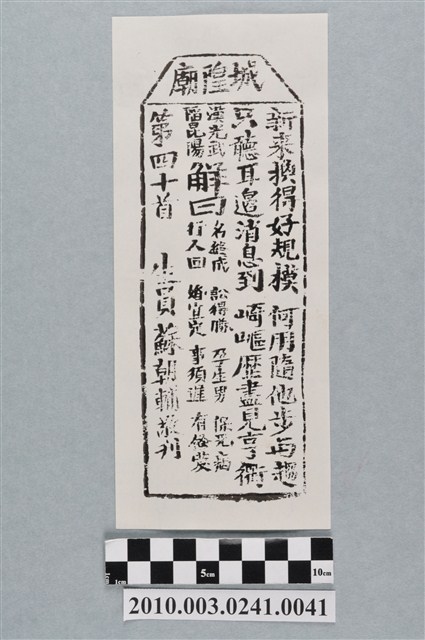 城隍廟
新來換得好規模 何用隨他步与趨
只聽耳邉消息到 崎嶇歷盡見亨衢
漢光武
陷昆陽
解曰
名終成 訟得勝 孕生男 保无病
行人回 婚宜定 事須遲 有餘慶
第四十首 生員蘇朝輔敬刊
1cm 5cm 10cm
2010.003.0241.0041